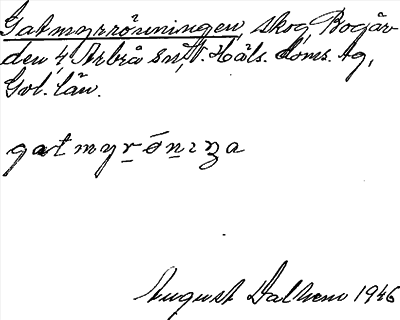 Gatmyrrönningen, skog, Bogår
den 4, Arbrå sn, N. Häls. doms. tg,
Gvl. län.
gatmyrónıza
August Dalhem 1946